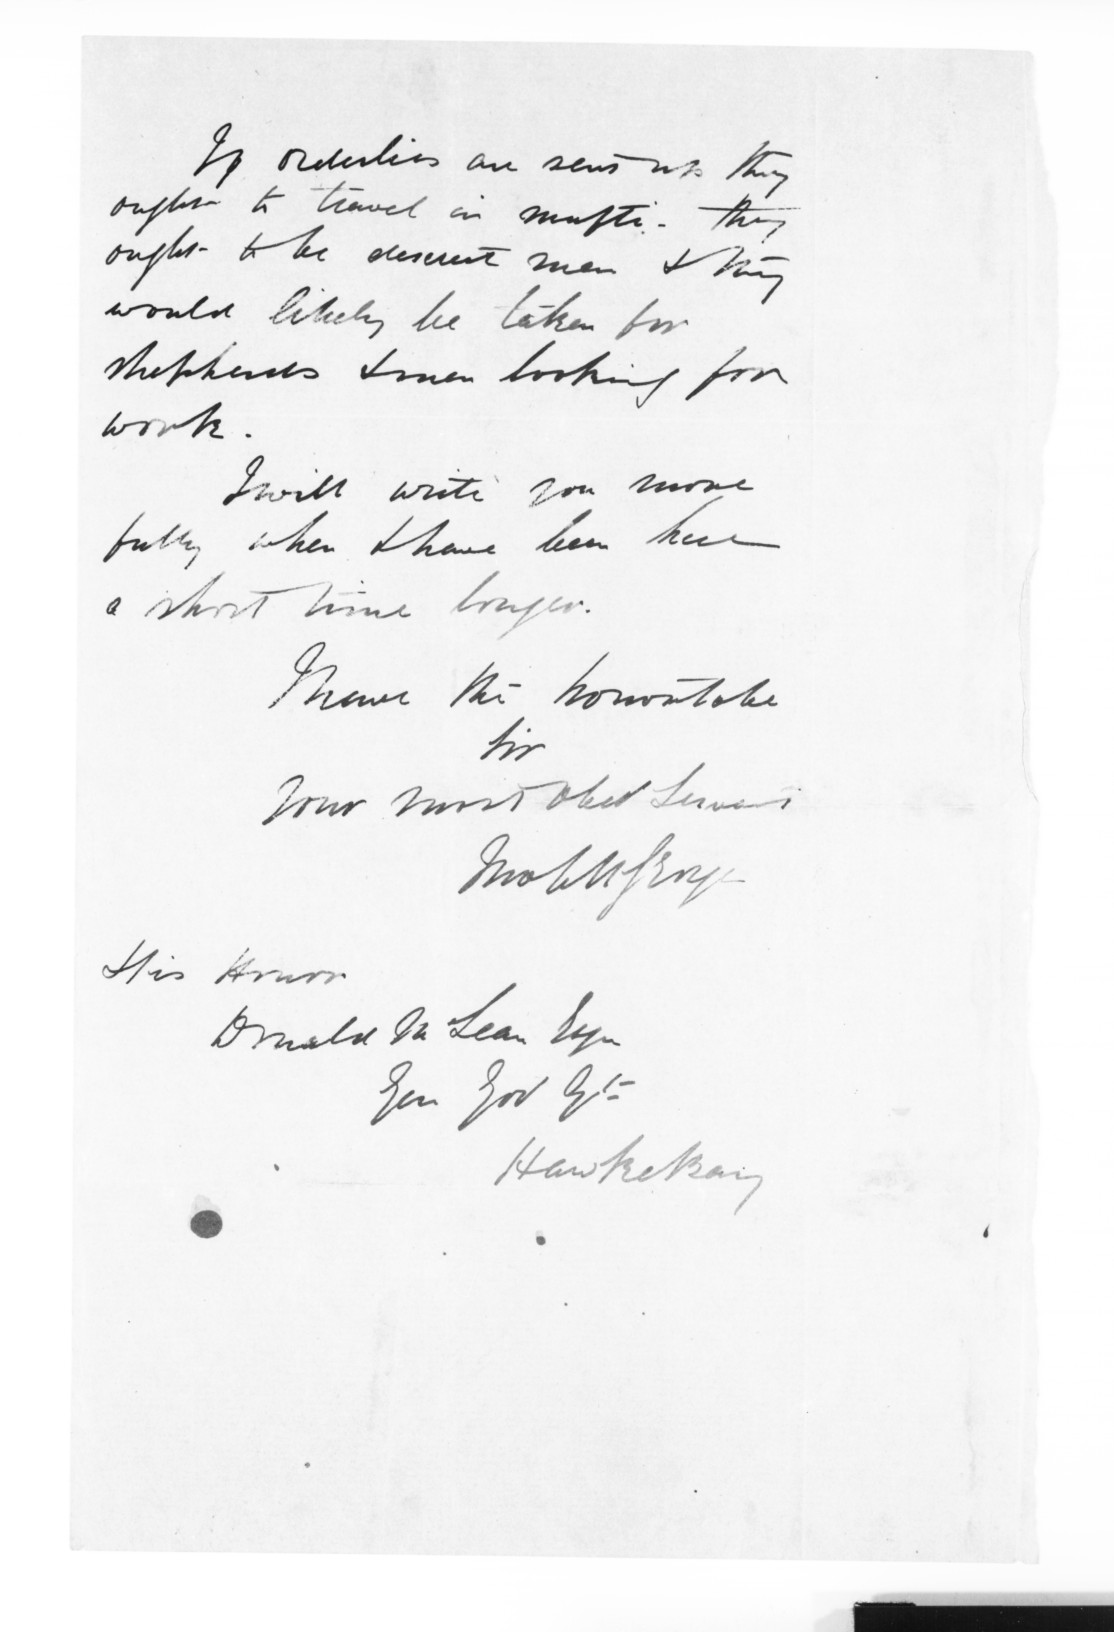 If orderlies are sent up they
ought to travel in mufti - they
ought to be descreet men & they
would likely be taken for
shepherds & men looking for
work.
I will write you more
fully when I have been here
a short time longer.
I have the honor to be
Sir
Your most Obed Servant
His Honor
Donald McLean Esqr
Gen Gov Agt
Hawke Bay